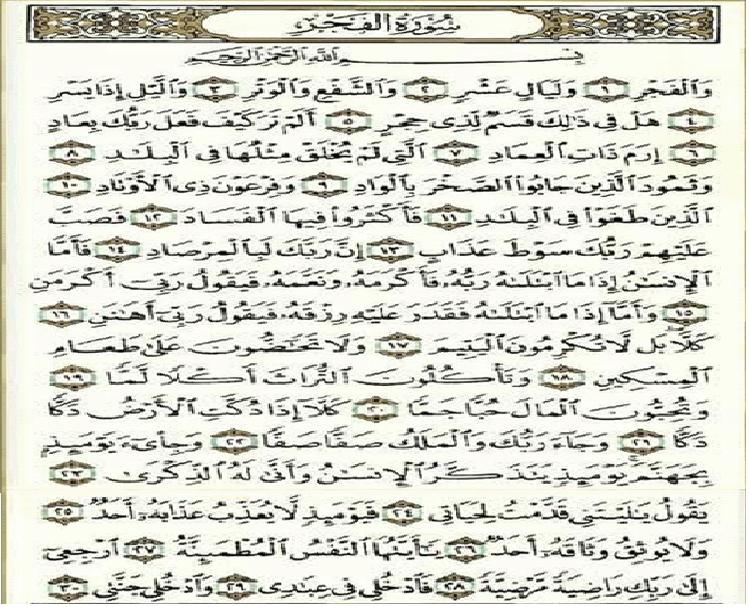 سُورَةُ الفَجْرِ
بِسْمِ اللَّهِ الرَّحْمَٰنِ الرَّحِيمِ
وَالْفَجْرِ ١ وَلَيَالٍ عَشْرٍ ٢ وَالشَّفْعِ وَالْوَتْرِ ٣ وَاللَّيْلِ إِذَا يَسْرِ
٤ هَلْ فِي ذَٰلِكَ قَسَمٌ لِّذِي حِجْرٍ ٥ أَلَمْ تَرَ كَيْفَ فَعَلَ رَبُّكَ بِعَادٍ
٦ إِرَمَ ذَاتِ الْعِمَادِ ٧ الَّتِي لَمْ يُخْلَقْ مِثْلُهَا فِي الْبِلَادِ ٨
وَثَمُودَ الَّذِينَ جَابُوا الصَّخْرَ بِالْوَادِ ٩ وَفِرْعَوْنَ ذِي الْأَوْتَادِ ١٠
الَّذِينَ طَغَوْا فِي الْبِلَادِ ١١ فَأَكْثَرُوا فِيهَا الْفَسَادَ ١٢ فَصَبَّ
عَلَيْهِمْ رَبُّكَ سَوْطَ عَذَابٍ ١٣ إِنَّ رَبَّكَ لَبِالْمِرْصَادِ ١٤ فَأَمَّا
الْإِنسَانُ إِذَا مَا ابْتَلَاهُ رَبُّهُ فَأَكْرَمَهُ وَنَعَّمَهُ فَيَقُولُ رَبِّي أَكْرَمَنِ
١٥ وَأَمَّا إِذَا مَا ابْتَلَاهُ فَقَدَرَ عَلَيْهِ رِزْقَهُ فَيَقُولُ رَبِّي أَهَانَنِ ١٦
كَلَّا بَل لَّا تُكْرِمُونَ الْيَتِيمَ ١٧ وَلَا تَحَاضُّونَ عَلَىٰ طَعَامِ
الْمِسْكِينِ ١٨ وَتَأْكُلُونَ التُّرَاثَ أَكْلًا لَّمًّا ١٩
وَتُحِبُّونَ الْمَالَ حُبًّا جَمًّا ٢٠ كَلَّا إِذَا دُكَّتِ الْأَرْضُ دَكًّا
دَكًّا ٢١ وَجَاءَ رَبُّكَ وَالْمَلَكُ صَفًّا صَفًّا ٢٢ وَجِايءَ يَوْمَئِذٍ
بِجَهَنَّمَ يَوْمَئِذٍ يَتَذَكَّرُ الْإِنسَانُ وَأَنَّىٰ لَهُ الذِّكْرَىٰ ٢٣
يَقُولُ يَا لَيْتَنِي قَدَّمْتُ لِحَيَاتِي ٢٤ فَيَوْمَئِذٍ لَّا يُعَذِّبُ عَذَابَهُ أَحَدٌ ٢٥
وَلَا يُوثِقُ وَثَاقَهُ أَحَدٌ ٢٦ يَا أَيَّتُهَا النَّفْسُ الْمُطْمَئِنَّةُ ٢٧ ارْجِعِي
إِلَىٰ رَبِّكِ رَاضِيَةً مَّرْضِيَّةً ٢٨ فَادْخُلِي فِي عِبَادِي ٢٩ وَادْخُلِي جَنَّتِي ٣٠